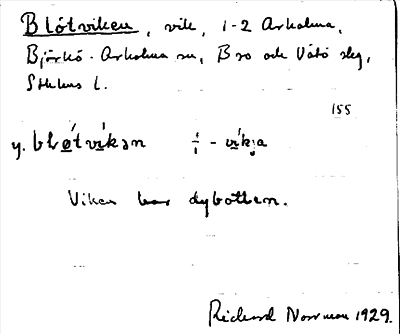 Blötviken, vik, 1-2 Arholma,
Björkö-Arholma sn, Bro och Vätö slg,
Sthlms l.
155
y. bløtvíkən i - vika
Viken har dybotten.
Richard Norrman 1929.